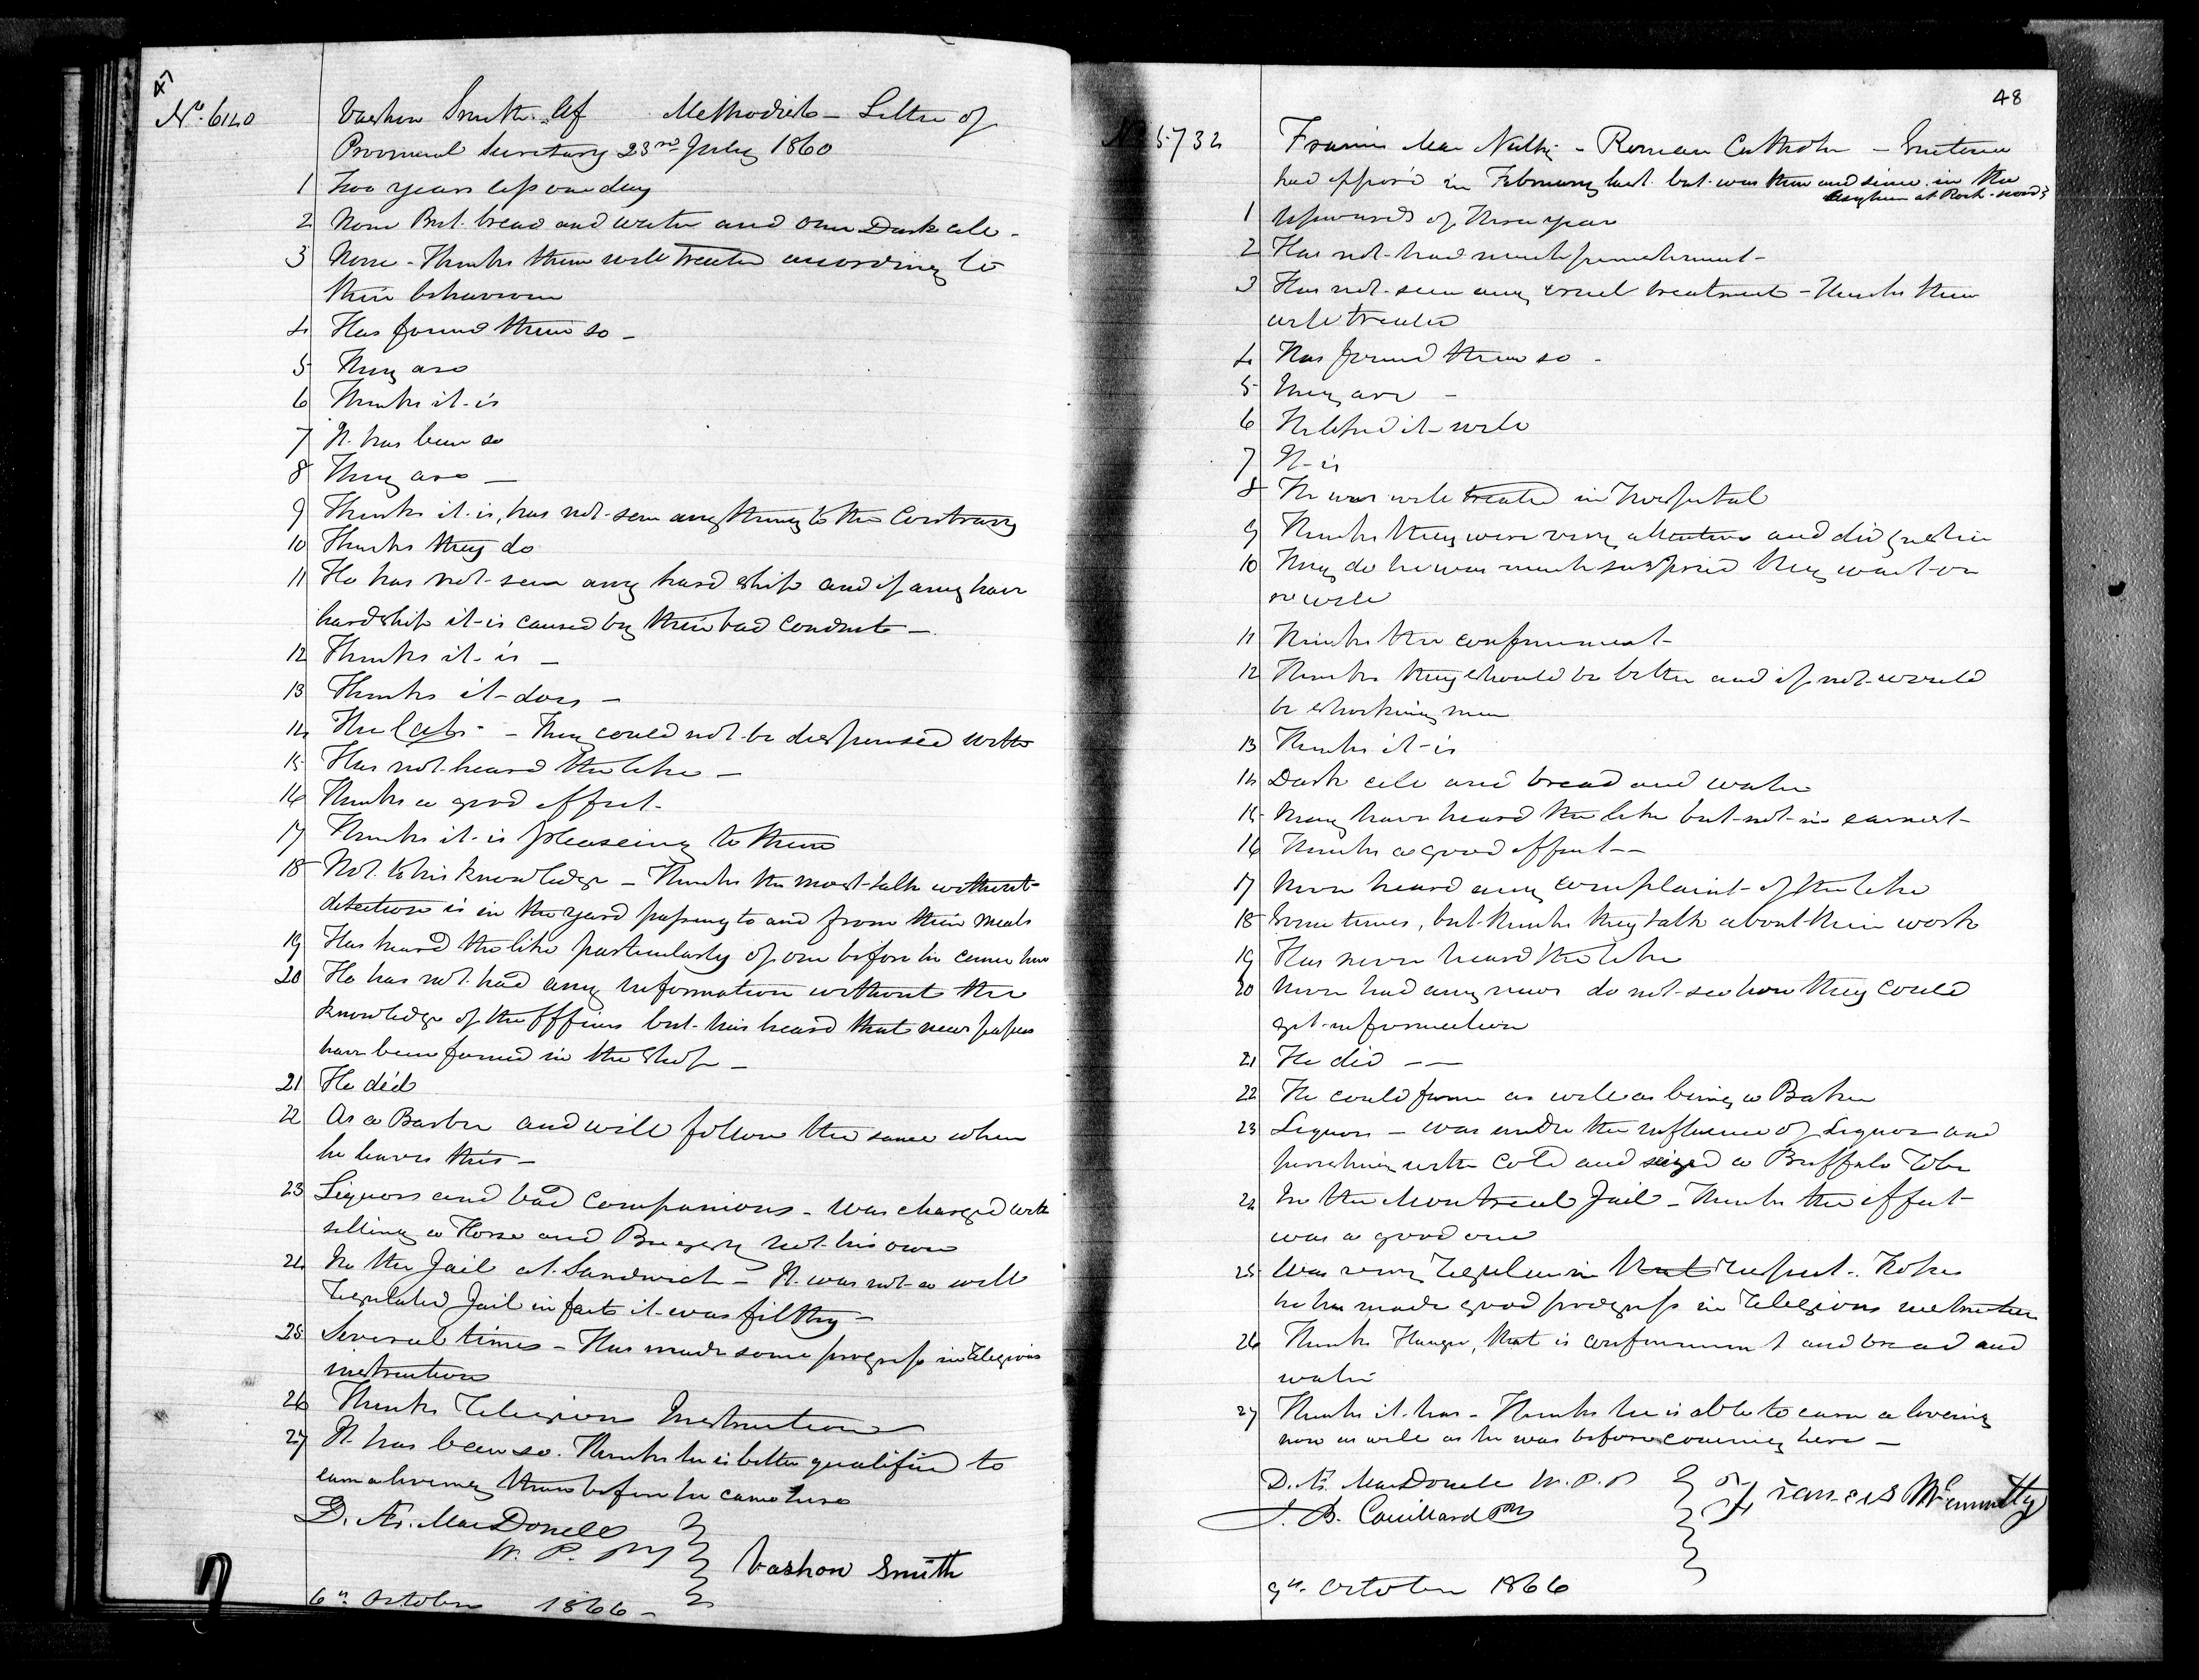 47
No. 6120
Vashon Smith. Af Methodist - Letter of
Provincial Secretary 23rd July 1860
1 Two years less one day
2 None But bread and water and one Dark cell -
3 None - Thinks them well treated according to
their behaviour
4 Has found them so -
5 They are
6 Thinks it is
7 It has been so
8 They are -
9 Thinks it is, has not seen any thing to the Contrary
10 Thinks they do
11 He has not seen any hard ship and if any have
hardship it is caused by their bad conduct -
12 Thinks it is -
13 Thinks it does -
14 The Cats - They could not be dispensed with
15 Has not heard the like -
16 Thinks a good effect.
17 Thinks it is pleaseing to them
18 Not to his knowledge - Thinks the most talk without
detection is in the yard passing to and from their meals
19 Has heard the like particularly of one before he came here
20 He has not had any information without the
knowledge of the officers but has heard that news papers
have been found in the shop -
21 He did
22 As a Barber and will follow the same when
he leaves this -
23 Liquors and bad Companions - was charged with
selling a Horse and Buggy not his own
24 In the Jail at Sandwich - It was not a well
regulated Jail in fact it was filthy -
25 Several times - Has made some progress in religious
instruction
26 Thinks Religious Instruction
27 It has been so. Thinks he is better qualified to
earn a liveing than before he came here
D. Æ. MacDonell
W. P. P.
Vashon Smith
6th October 1866 -
48
No 5732
Francis MacNulty - Roman Catholic - Sentence
had expired in February last but was then and since in the
Asylum at Rock-wood
1 Upwards of three year
2 Has not had much punishment -
3 Has not seen any cruel treatment - Thinks them
well treated
4 Has found them so -
5 They are -
6 He liked it well
7 It is
8 He was well treated in Hospital
9 Thinks they were very attentive and did justice
10 They do he was much surprised they went on
so well
11 Thinks the confinement -
12 Thinks they should be better and if not would
be shocking men
13 Thinks it is
14 Dark cell and bread and water
15 Many have heard the like but not in earnest -
16 Thinks a good effect --
17 Never heard any complaint of the like
18 Some times, but thinks they talk about their work
19 Has never heard the like
20 Never had any news do not see how they could
get information
21 He did --
22 He could farm as well as being a Baker
23 Liquor - was under the influence of Liquor and
perishing with cold and seized a Buffalo Robe
24 In the Montreal Jail - Thinks the effect
was a good one
25 Was very regular in that respect. Hopes
he has made good progress in religious instruction
26 Thinks Hunger, that is confinement and bread and
water
27 Thinks it has - Thinks he is able to earn a liveing
now as well as he was before comeing here -
D. Æ. MacDonell W. P. P.
J. B. Couillard
Francis McAnnulty
9th October 1866